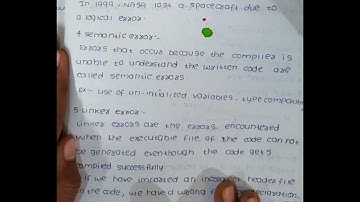 In 1999, NASA lost a spacecraft due to
a logical error.
4. semantic error:-
Errors that occur because the compiler is
unable to understand the written code are
called semantic errors
Ex:- use of un-intialized variables, type compatibi
5. Linker error:-
Linker errors are the errors encountered
when the executable file of the code can not
be generated eventhough the code gets
compiled successfully
If we have imported an incorrect header file
in the code, we have a wrong declaration,